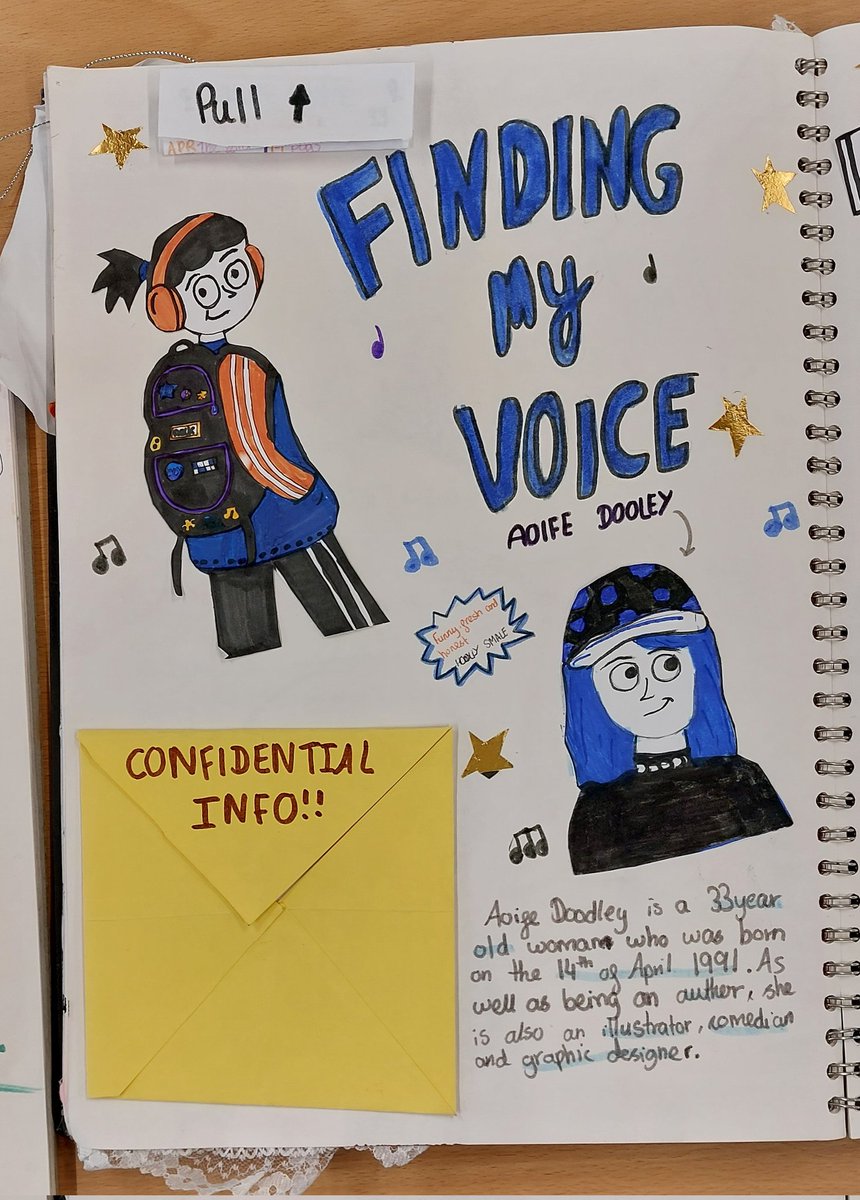 Pull ↑
FINDING
my
VOICE
AOIFE DOOLEY
Funny fresh and
honest
HOLLY SMALE
CONFIDENTIAL
INFO!!
Aoife Doodley is a 33year
old woman who was born
on the 14th of April 1991. As
well as being an author, she
is also an illustrator, comedian
and graphic designer.